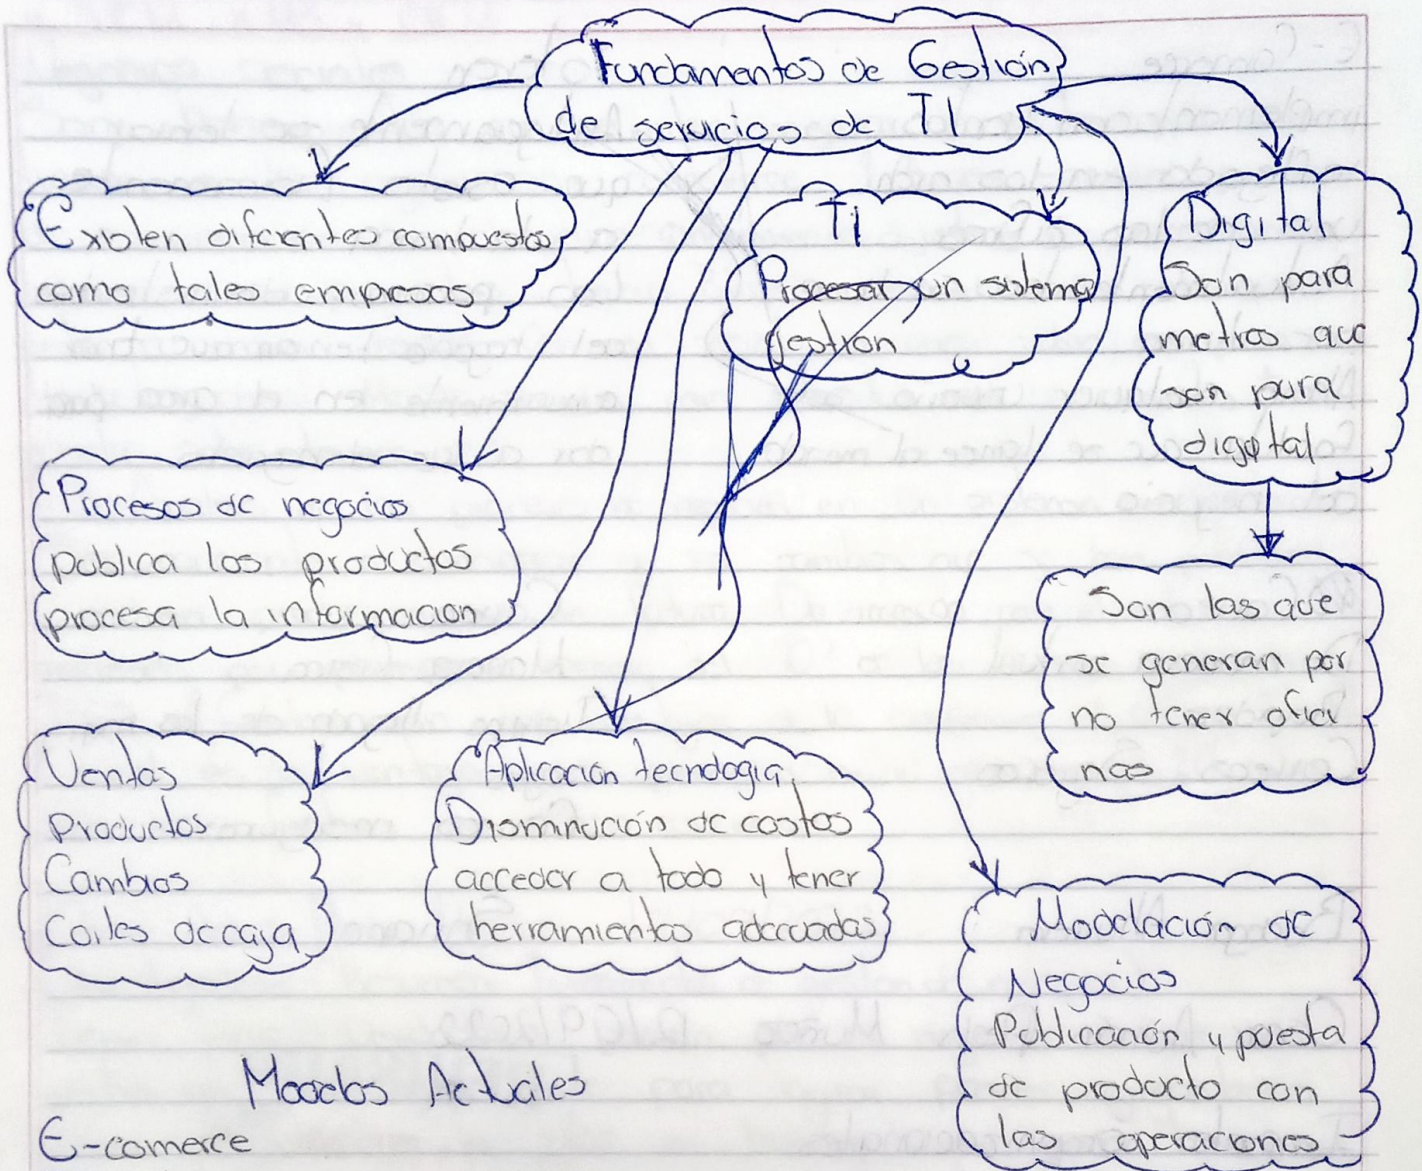 Fundamentos de Gestión
de servicios de TI
Existen diferentes compuestos
como tales empresas
TI
Procesar un sistema
gestión
Digital
Son para
metros que
son para
digital
Procesos de negocios
publica los productos
procesa la informacion
Son las que
se generan por
no tener ofici
nas
Ventas
Productos
Cambios
Cortes de caja
Aplicación tecnología
Disminución de costos
acceder a todo y tener
herramientas adecuadas
Modelación de
Negocios
Publicación y puesta
de producto con
las operaciones
Modelos Actuales
E-comerce